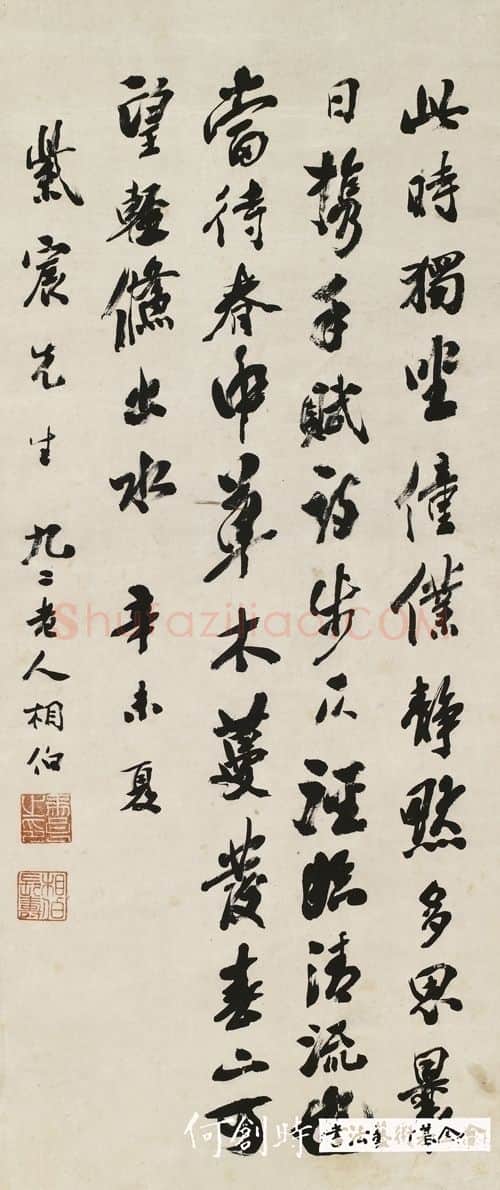 此時獨坐僮僕靜默多思曩
日携手賦詩步仄逕臨清流也
當待春中草木蔓發春山可
望輕鯈出水 辛未夏
紫宸先生 九二老人相伯
相伯
長壽
Shufaziliao.COM
何創時書法藝術基金會